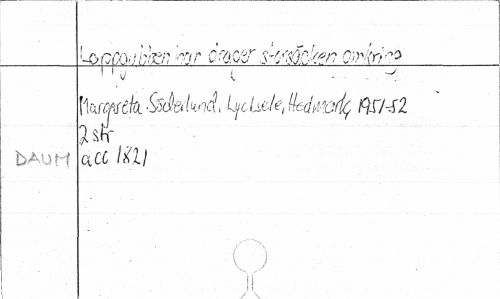 Lappgubben har drager storsäcken omkring
Margareta Söderlund, Lycksele, Hedmark, 1951-52
2 str
DAUM acc 1821